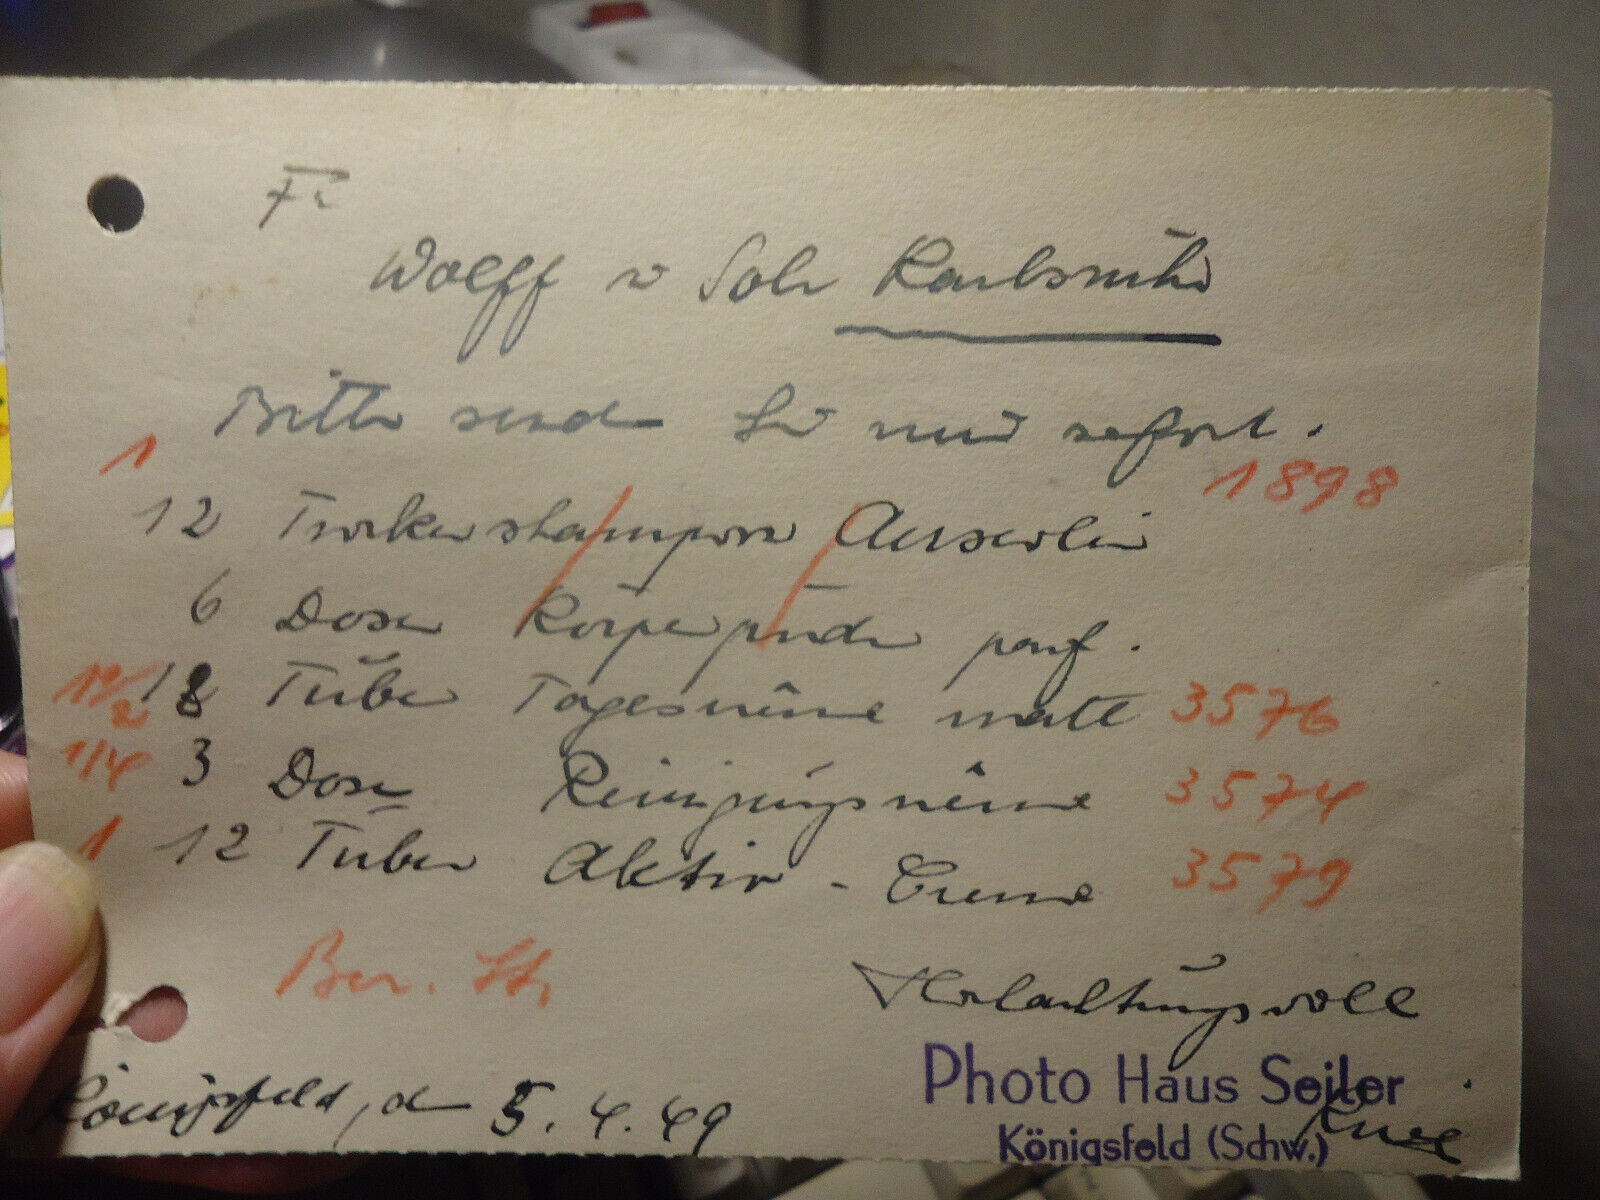 Fa
Wolff u Sohn Karlsruhe
Bitte senden Sie mir sofort.
1
1898
12 Trockenshampoon Auserlein
6 Dosen Körperpuder parf.
1 1/2 18 Tuben Tagescreme matt 3576
1/4 3 Dosen Reinigungscreme 3574
1 12 Tuben Aktiv - Creme 3579
Hochachtungsvoll
Photo Haus Seiler
Königsfeld, den 5.4.49
Königsfeld (Schw.)